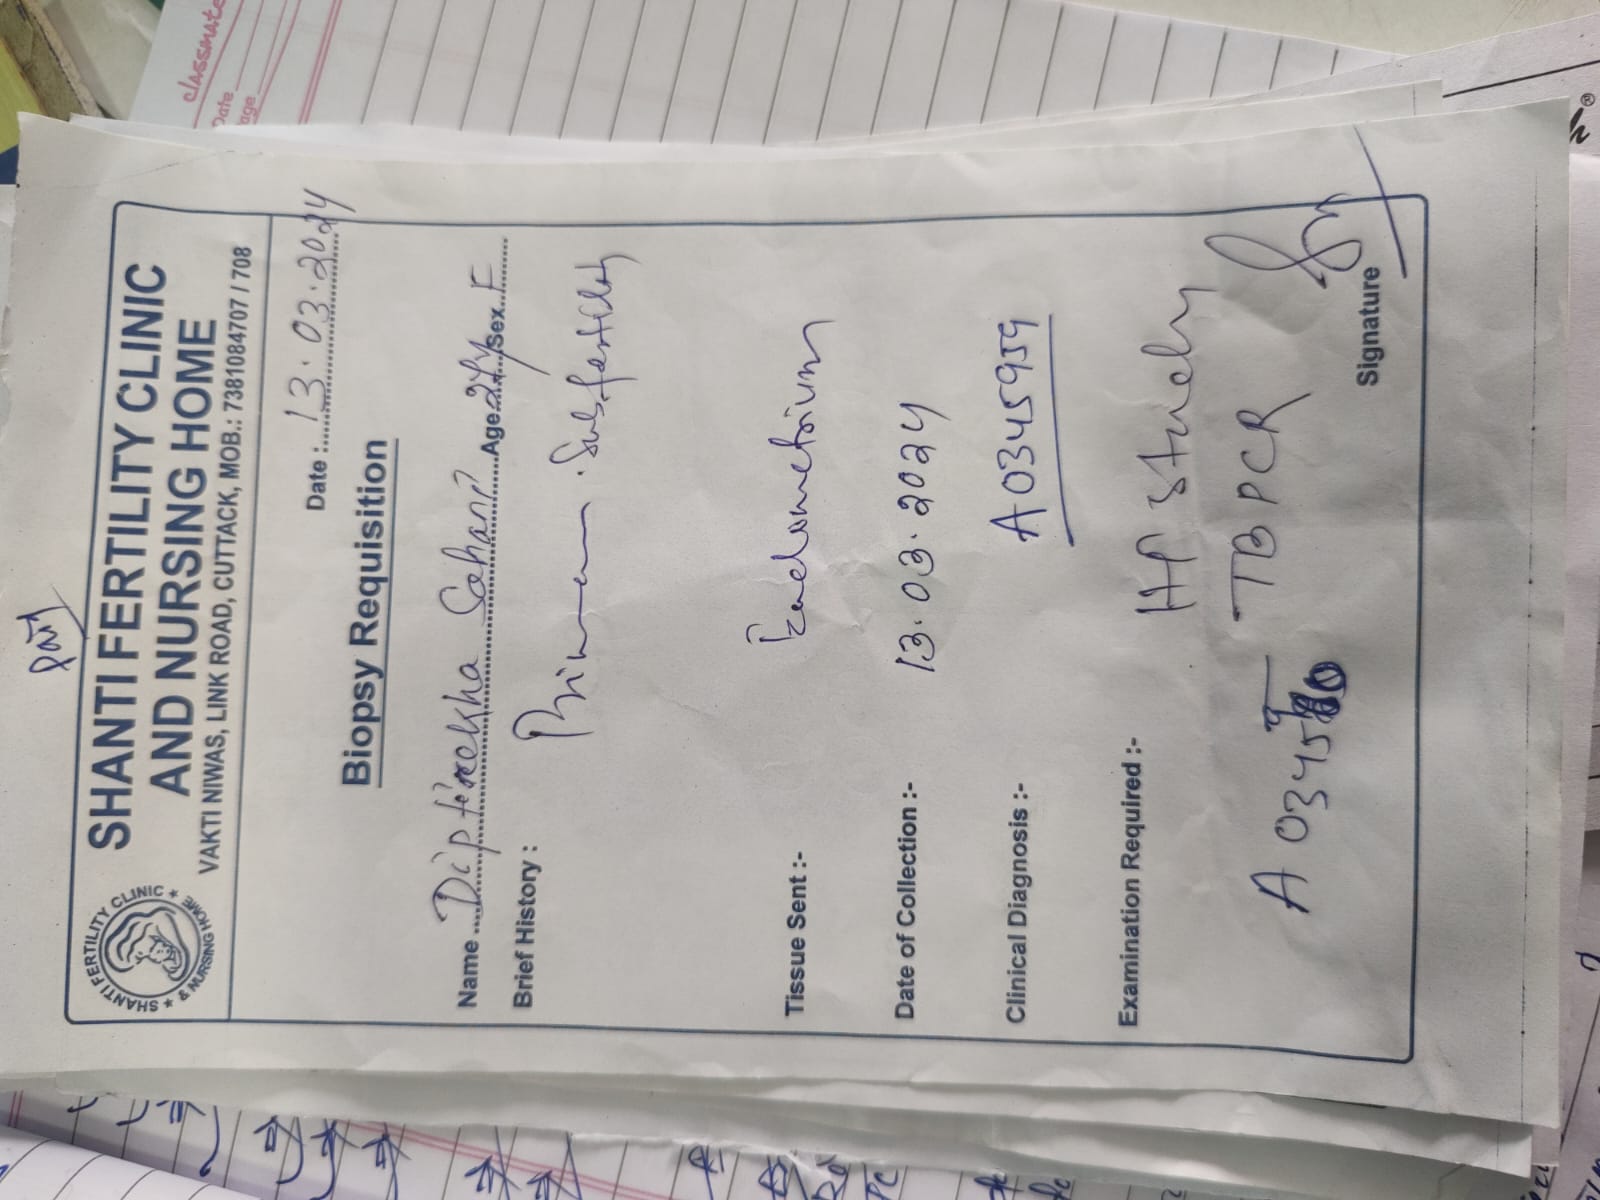 SHANTI FERTILITY CLINIC
AND NURSING HOME
VAKTI NIWAS, LINK ROAD, CUTTACK, MOB.: 7381084707 / 708
SHANTI FERTILITY CLINIC
& NURSING HOME
Date : 13.03.2024
Biopsy Requisition
Name Diptirekha Sahani Age 27y Sex F
Brief History :
Primary Subfertility
Tissue Sent :- Endometrium
Date of Collection :- 13.03.2024
Clinical Diagnosis :- A0345959
Examination Required :- HP Study
TBPCR
A0345960
Signature
classmate
Date
Page